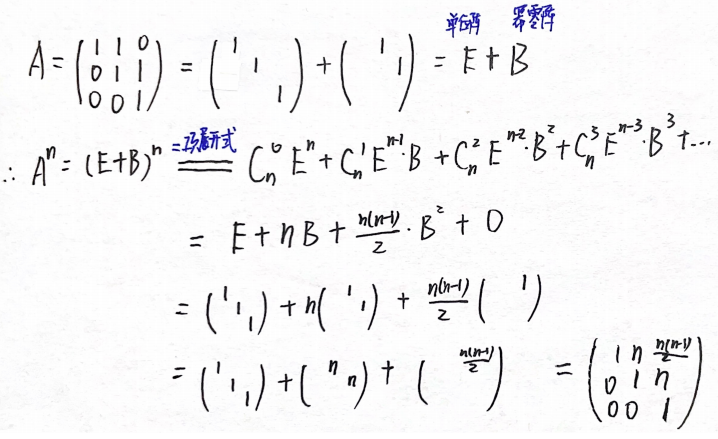 单位阵 幂零阵
A = (1 1 0; 0 1 1; 0 0 1) = (1; 1; 1) + (1; 1) = E + B
∴ A^n = (E+B)^n =二项展开式= C_n^0 E^n + C_n^1 E^{n-1}·B + C_n^2 E^{n-2}·B^2 + C_n^3 E^{n-3}·B^3 + ...
= E + nB + n(n-1)/2 · B^2 + 0
= (1; 1; 1) + n(1; 1) + n(n-1)/2 (1)
= (1; 1; 1) + (n; n) + (n(n-1)/2) = (1 n n(n-1)/2; 0 1 n; 0 0 1)